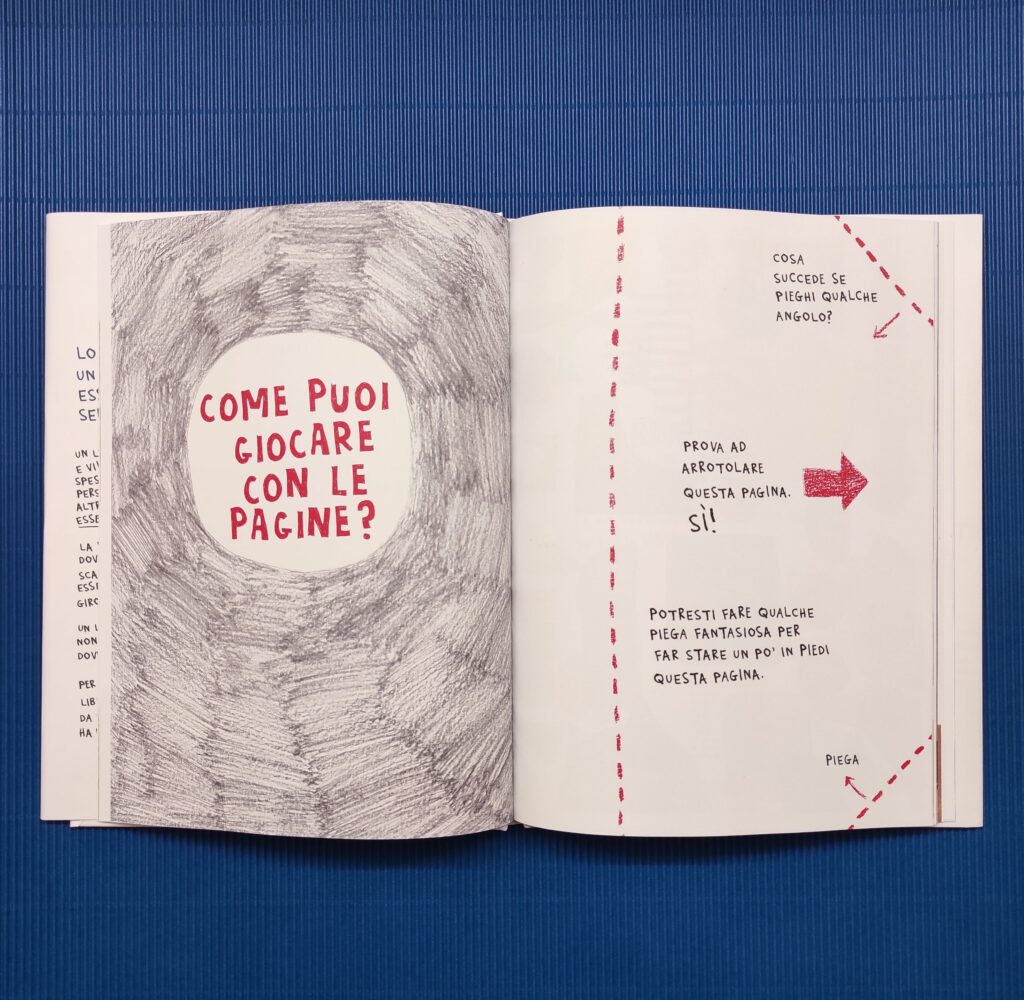 LO
UN
UN
E
LA
UN
NON
PER
DA
HA
COME PUOI
GIOCARE
CON LE
PAGINE?
COSA
SUCCEDE SE
PIEGHI QUALCHE
ANGOLO?
PROVA AD
ARROTOLARE
QUESTA PAGINA.
SÌ!
POTRESTI FARE QUALCHE
PIEGA FANTASIOSA PER
FAR STARE UN PO' IN PIEDI
QUESTA PAGINA.
PIEGA